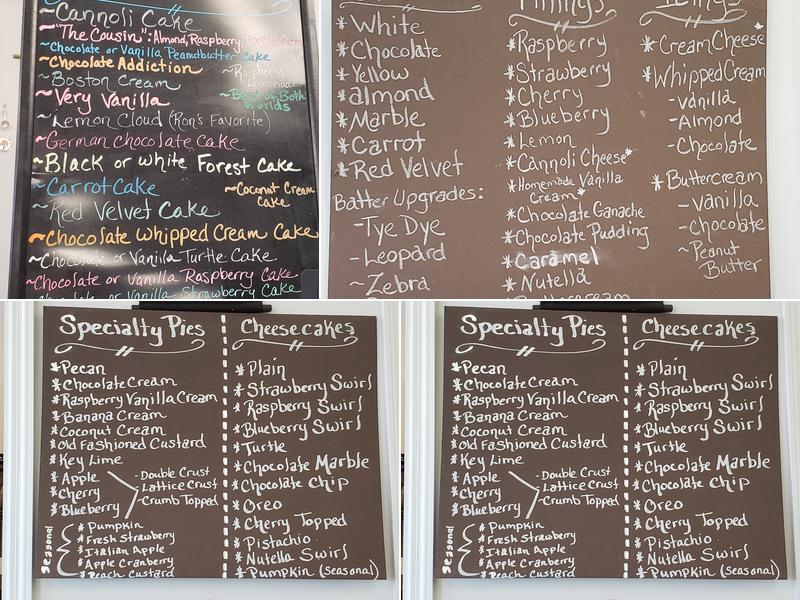 ~Cannoli Cake
~"The Cousin": Almond, Raspberry, Vanilla
~Chocolate or Vanilla Peanutbutter Cake
~Chocolate Addiction
~Raspberry Lemonade
~Boston Cream
~Very Vanilla
~Best of Both Worlds
~Lemon Cloud (Ron's Favorite)
~German Chocolate Cake
~Black or White Forest Cake
~Carrot Cake
~Coconut Cream Cake
~Red Velvet Cake
~Chocolate Whipped Cream Cake
~Chocolate or Vanilla Turtle Cake
~Chocolate or Vanilla Raspberry Cake
Chocolate or Vanilla Strawberry Cake
*White
*Chocolate
*Yellow
*almond
*Marble
*Carrot
*Red Velvet
Batter Upgrades:
-Tye Dye
-Leopard
~Zebra
Fillings
*Raspberry
*Strawberry
*Cherry
*Blueberry
*Lemon
*Cannoli Cheese*
*Homemade Vanilla
Cream*
*Chocolate Ganache
*Chocolate Pudding
*Caramel
*Nutella
Buttercream
Icings
*Cream Cheese*
*Whipped Cream
-vanilla
-Almond
-Chocolate
*Buttercream
-vanilla
-chocolate
~Peanut
Butter
Specialty Pies
*Pecan
*Chocolate Cream
*Raspberry Vanilla Cream
*Banana Cream
*Coconut Cream
*Old Fashioned Custard
*Key Lime
*Apple
*Cherry
*Blueberry
-Double Crust
-Lattice Crust
-Crumb Topped
Seasonal
*Pumpkin
*Fresh Strawberry
*Italian Apple
*Apple Cranberry
*Peach Custard
Cheesecakes
*Plain
*Strawberry Swirl
*Raspberry Swirl
*Blueberry Swirl
*Turtle
*Chocolate Marble
*Chocolate Chip
*Oreo
*Cherry Topped
*Pistachio
*Nutella Swirl
*Pumpkin (seasonal)
Specialty Pies
*Pecan
*Chocolate Cream
*Raspberry Vanilla Cream
*Banana Cream
*Coconut Cream
*Old Fashioned Custard
*Key Lime
*Apple
*Cherry
*Blueberry
-Double Crust
-Lattice Crust
-Crumb Topped
Seasonal
*Pumpkin
*Fresh Strawberry
*Italian Apple
*Apple Cranberry
*Peach Custard
Cheesecakes
*Plain
*Strawberry Swirl
*Raspberry Swirl
*Blueberry Swirl
*Turtle
*Chocolate Marble
*Chocolate Chip
*Oreo
*Cherry Topped
*Pistachio
*Nutella Swirl
*Pumpkin (seasonal)